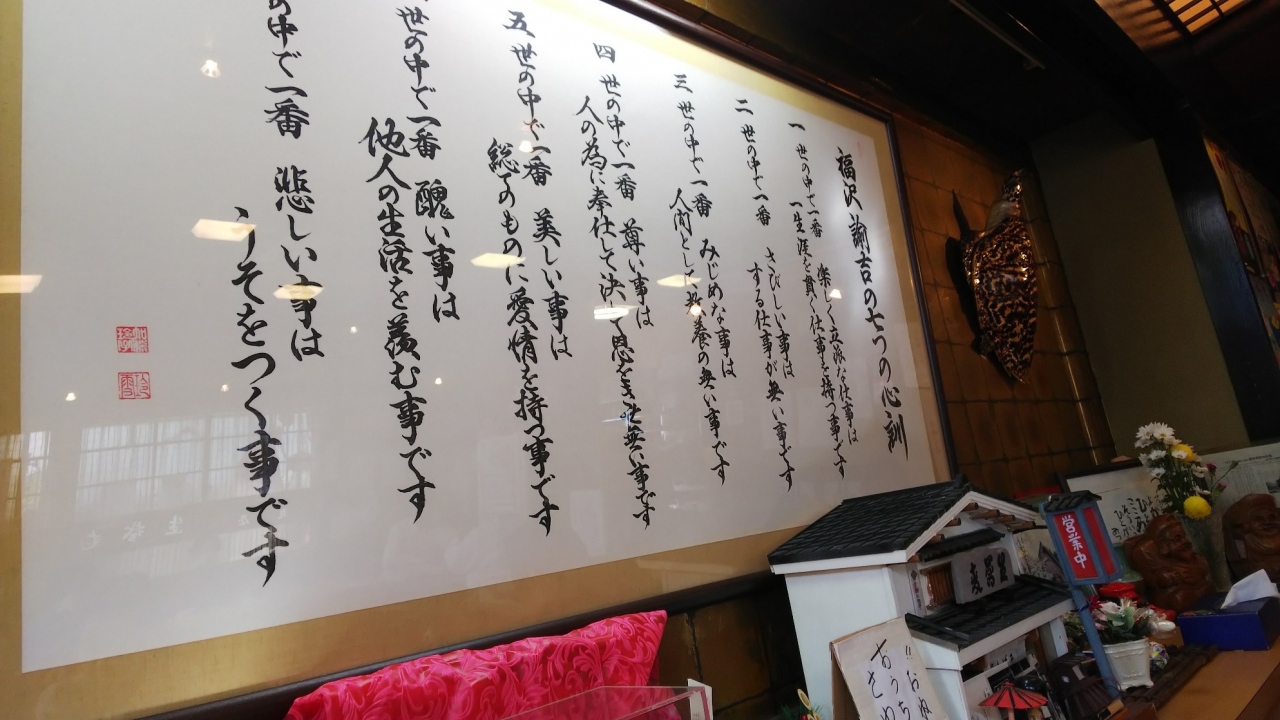 福沢諭吉の七つの心訓
一 世の中で一番 楽しく立派な仕事は
一生涯を貫く仕事を持つ事です
二 世の中で一番 さびしい事は
する仕事が無い事です
三 世の中で一番 みじめな事は
人間として教養の無い事です
四 世の中で一番 尊い事は
人の為に奉仕して決して恩をきせ無い事です
五 世の中で一番 美しい事は
総てのものに愛情を持つ事です
世の中で一番 醜い事は
他人の生活を羨む事です
の中で一番 悲しい事は
うそをつく事です
営業中